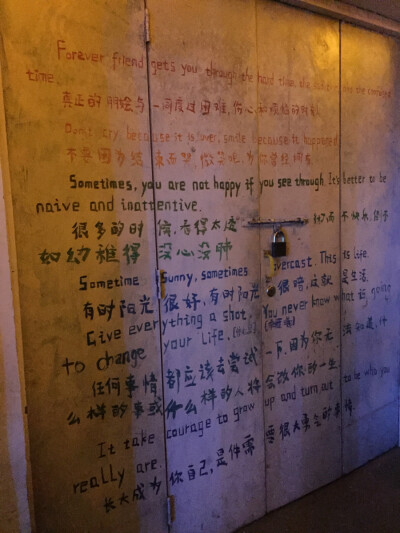 Forever friend gets you through the hard
time
真正的朋 与 一同度过困难, 伤心 和烦恼的时刻
Don't cry because it is over, smile because it happened
不要因为结束而哭, 微笑吧, 为你曾经拥有
Sometimes, you are not happy if you see through. It's better to be
naive and inattentive.
很多的时 看得太透 而不快乐,
如幼稚得 没心没肺
Sometime Sunny, sometimes overcast. This is life.
有时阳光 很好, 有时阳光 很暗, 这就 是生活.
Give everything a shot. You never know what is going
to change your life.
任何事情 都应该去尝试 一下, 因为你无 法知道, 什
么样的事或 什么样的人将 会改 你的一生
It take courage to grow up and turn out to be who you
really are.
长大成为 你自己, 是件需 要很大勇气的事情